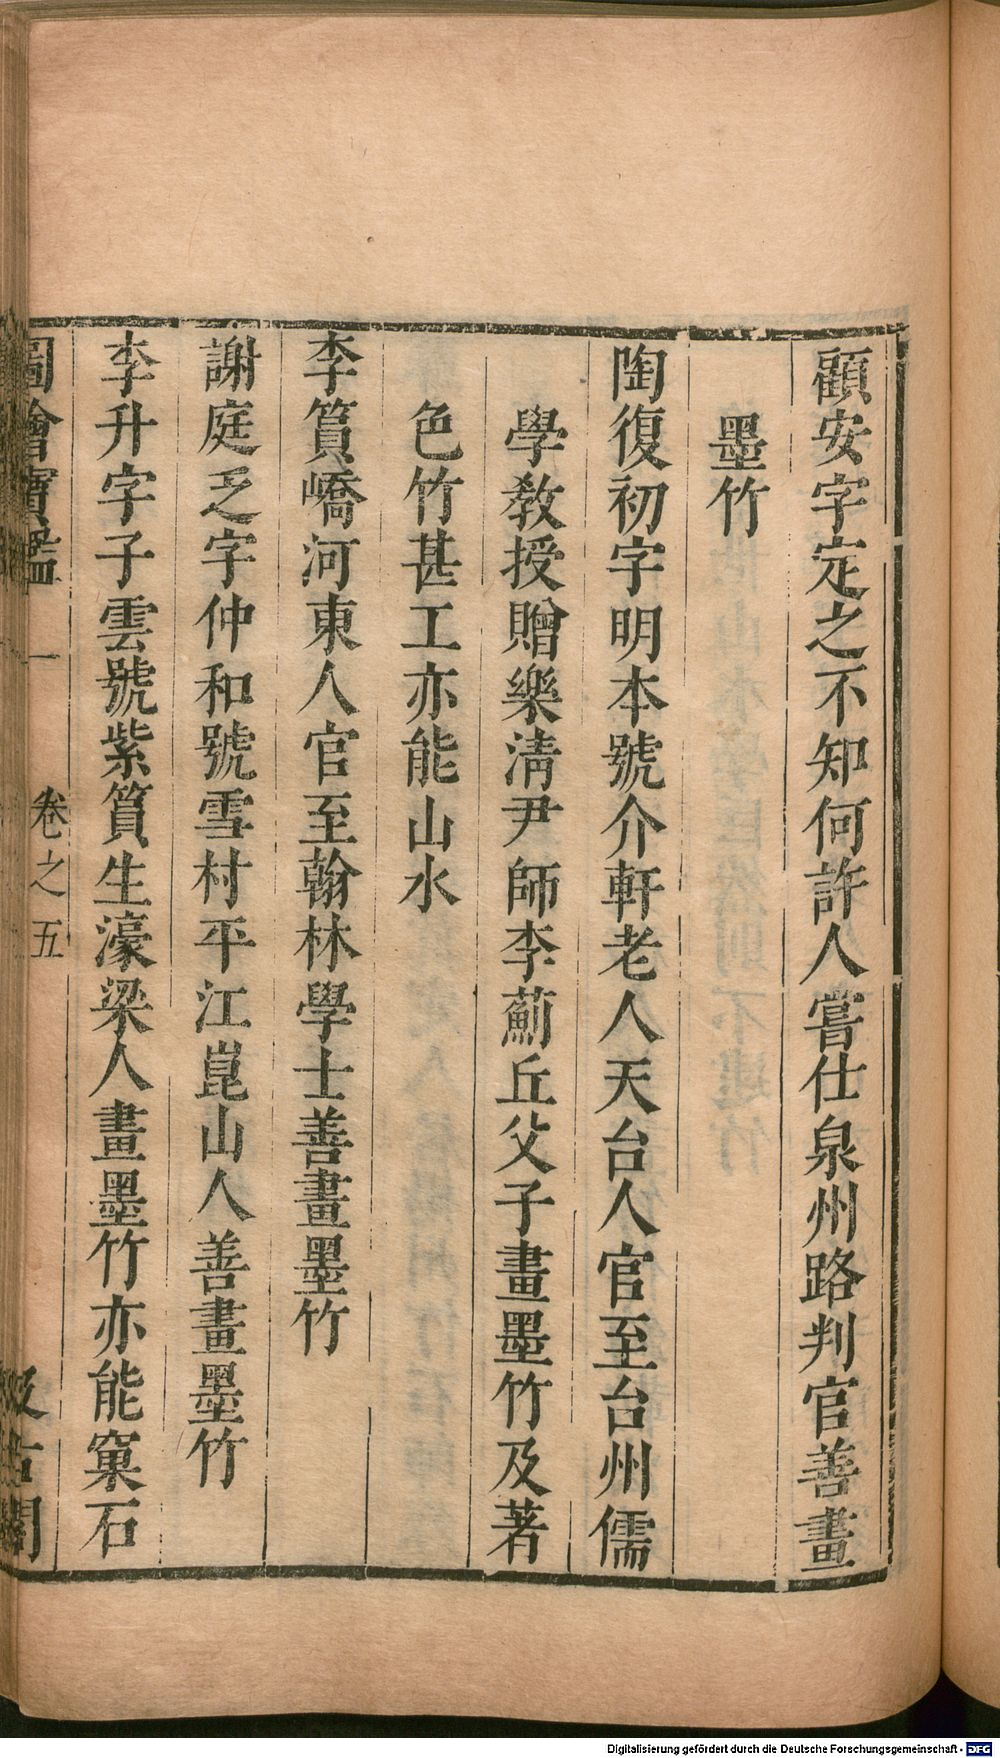 顧安字定之不知何許人嘗仕泉州路判官善畫
墨竹
陶復初字明本號介軒老人天台人官至台州儒
學教授贈樂淸尹師李薊丘父子畫墨竹及著
色竹甚工亦能山水
李篔嶠河東人官至翰林學士善畫墨竹
謝庭芝字仲和號雪村平江崑山人善畫墨竹
李升字子雲號紫篔生濠梁人畫墨竹亦能窠石
圖繪寶鑑 一 卷之五 汲古閣
Digitalisierung gefördert durch die Deutsche Forschungsgemeinschaft - DFG